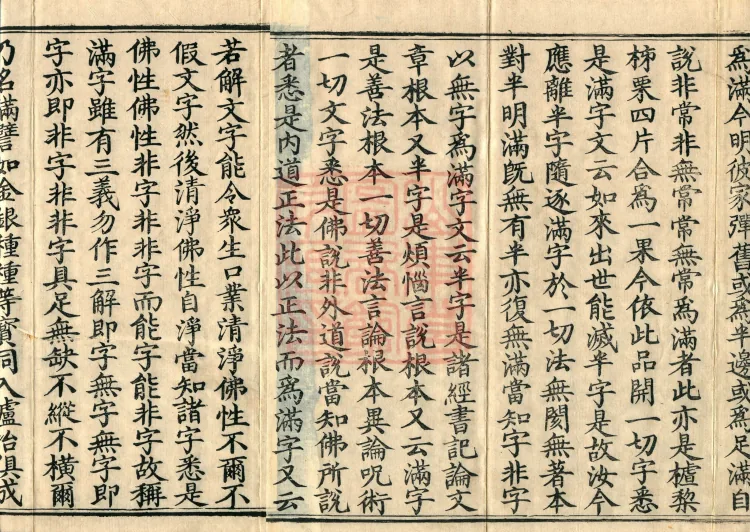 爲滿今明彼家彈舊或爲半邊或爲足滿自
說非常非無常常無常爲滿者此亦是樝黎
柹栗四片合爲一果今依此品開一切字悉
是滿字文云如來出世能滅半字是故汝今
應離半字隨逐滿字於一切法無閡無著本
對半明滿旣無有半亦復無滿當知字非字
以無字爲滿字文云半字是諸經書記論文
章根本又半字是煩惱言說根本又云滿字
是善法根本一切善法言論根本異論呪術
一切文字悉是佛說非外道說當知佛所說
者悉是内道正法此以正法而爲滿字又云
若解文字能令衆生口業清淨佛性不爾不
假文字然後清淨佛性自淨當知諸字悉是
佛性佛性非字非非字而能字能非字故稱
滿字雖有三義勿作三解即字無字無字即
字亦即非字非非字具足無缺不縱不橫爾
乃名滿譬如金銀種種等寶同入爐冶俱成